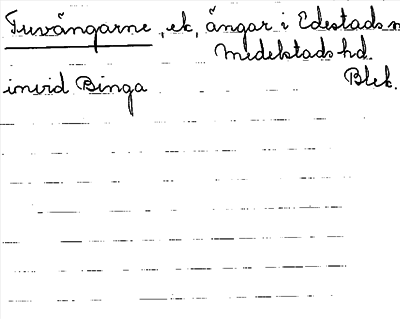 Tuvängarne, ek, ängar i Edestads
Medelstads hd.
invid Binga Blek.